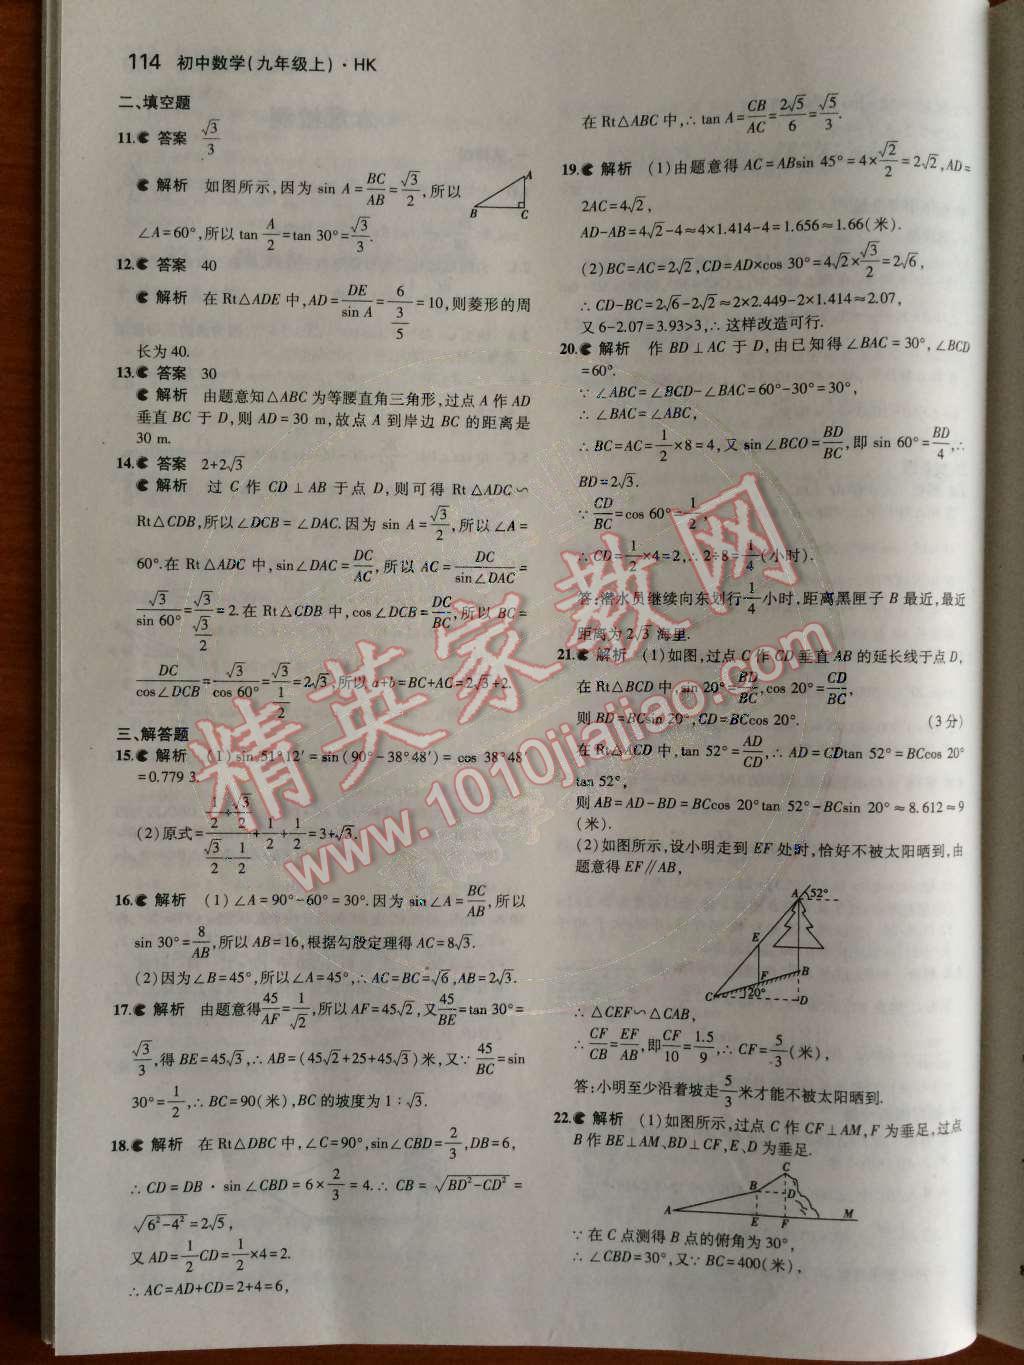 114 初中数学(九年级上)·HK
二、填空题
11. 答案 √3/3
解析 如图所示,因为 sin A=BC/AB=√3/2,所以
∠A=60°,所以 tan A/2=tan 30°=√3/3.
A
B
C
12. 答案 40
解析 在 Rt△ADE 中,AD=DE/sin A=6/(3/5)=10,则菱形的周
长为 40.
13. 答案 30
解析 由题意知△ABC 为等腰直角三角形,过点 A 作 AD
垂直 BC 于 D,则 AD=30 m,故点 A 到岸边 BC 的距离是
30 m.
14. 答案 2+2√3
解析 过 C 作 CD⊥AB 于点 D,则可得 Rt△ADC∽
Rt△CDB,所以∠DCB=∠DAC.因为 sin A=√3/2,所以∠A=
60°.在 Rt△ADC 中,sin∠DAC=DC/AC,所以 AC=DC/sin∠DAC=
√3/sin 60°=√3/(√3/2)=2.在 Rt△CDB 中,cos∠DCB=DC/BC,所以 BC=
DC/cos∠DCB=√3/cos 60°=√3/(1/2)=2√3,所以 a+b=BC+AC=2√3+2.
三、解答题
15. 解析 (1)sin 51°12′=sin(90°-38°48′)=cos 38°48′
=0.779 3.
(2)原式=(1/2+√3/2)/(√3/2-1/2)+1/2+1/2=3+√3.
16. 解析 (1)∠A=90°-60°=30°.因为 sin∠A=BC/AB,所以
sin 30°=8/AB,所以 AB=16,根据勾股定理得 AC=8√3.
(2)因为∠B=45°,所以∠A=45°,∴AC=BC=√6,AB=2√3.
17. 解析 由题意得45/AF=1/√2,所以 AF=45√2,又45/BE=tan 30°=
√3/3,得 BE=45√3,∴AB=(45√2+25+45√3)米,又∵45/BC=sin
30°=1/2,∴BC=90(米),BC 的坡度为 1∶√3.
18. 解析 在 Rt△DBC 中,∠C=90°,sin∠CBD=2/3,DB=6,
∴CD=DB·sin∠CBD=6×2/3=4.∴CB=√(BD²-CD²)=
√(6²-4²)=2√5,
又 AD=1/2CD=1/2×4=2.
∴AC=AD+CD=2+4=6,
在 Rt△ABC 中,∴tan A=CB/AC=2√5/6=√5/3.
19. 解析 (1)由题意得 AC=ABsin 45°=4×√2/2=2√2,AD=
2AC=4√2,
AD-AB=4√2-4≈4×1.414-4=1.656≈1.66(米).
(2)BC=AC=2√2,CD=AD×cos 30°=4√2×√3/2=2√6,
∴CD-BC=2√6-2√2≈2×2.449-2×1.414≈2.07,
又 6-2.07=3.93>3,∴这样改造可行.
20. 解析 作 BD⊥AC 于 D,由已知得∠BAC=30°,∠BCD
=60°.
∵∠ABC=∠BCD-∠BAC=60°-30°=30°,
∴∠BAC=∠ABC,
∴BC=AC=1/2×8=4,又 sin∠BCO=BD/BC,即 sin 60°=BD/4,∴
BD=2√3.
∵CD/BC=cos 60°=1/2,
∴CD=1/2×4=2,∴2÷8=1/4(小时).
答:潜水员继续向东划行1/4小时,距离黑匣子 B 最近,最近
距离为 2√3 海里.
21. 解析 (1)如图,过点 C 作 CD 垂直 AB 的延长线于点 D,
在 Rt△BCD 中,sin 20°=BD/BC,cos 20°=CD/BC,
则 BD=BCsin 20°,CD=BCcos 20°. (3分)
在 Rt△ACD 中,tan 52°=AD/CD,∴AD=CDtan 52°=BCcos 20°
tan 52°,
则 AB=AD-BD=BCcos 20°tan 52°-BCsin 20°≈8.612≈9
(米).
(2)如图所示,设小明走到 EF 处时,恰好不被太阳晒到,由
题意得 EF∥AB,
A 52°
E
F
B
C 20°
D
∴△CEF∽△CAB,
∴CF/CB=EF/AB,即CF/10=1.5/9,∴CF=5/3(米),
答:小明至少沿着坡走5/3米才能不被太阳晒到.
22. 解析 (1)如图所示,过点 C 作 CF⊥AM,F 为垂足,过点
B 作 BE⊥AM、BD⊥CF,E、D 为垂足.
C
B
D
A
E
F
M
∵在 C 点测得 B 点的俯角为 30°,
∴∠CBD=30°,又∵BC=400(米),
精英家教网
www.1010jiajiao.com